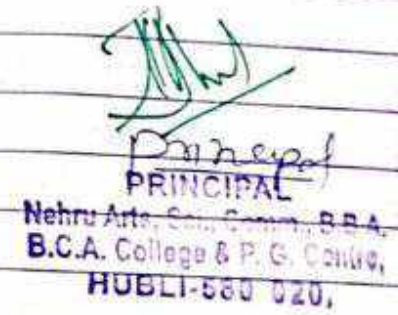 Principal
PRINCIPAL
Nehru Arts, Sci., Comm., B.B.A.
B.C.A. College & P. G. Centre,
HUBLI-580 020.